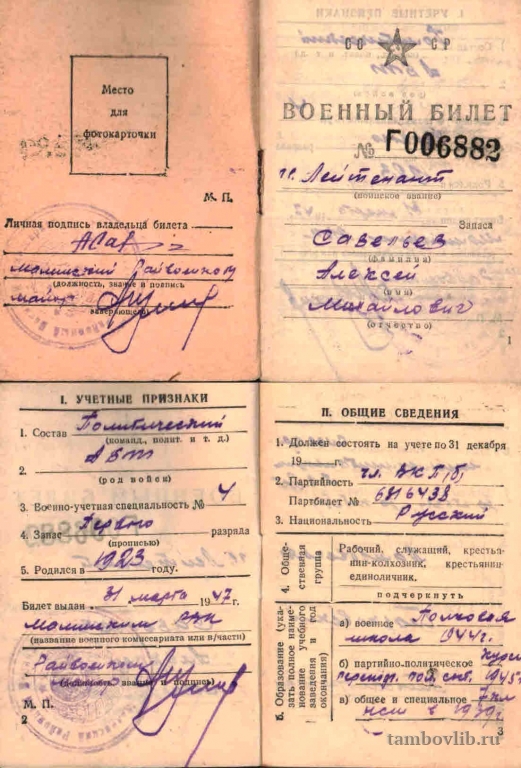 Место
для
фотокарточки
М. П.
Личная подпись владельца билета
Райвоенком
(должность, звание и подпись
майор
заверяющего)
СССР
ВОЕННЫЙ БИЛЕТ
№ Г006882
Лейтенант
(воинское звание)
Запаса
Савельев
(фамилия)
Алексей
(имя)
Михайлович
(отчество)
1
I. УЧЕТНЫЕ ПРИЗНАКИ
1. Состав Политический
(команд., полит. и т. д.)
2. АБТ
(род войск)
3. Военно-учетная специальность № 4
4. Запас Первого разряда
(прописью)
5. Родился в 1923 году.
Билет выдан 31 марта 1947 г.
РВК
(название военного комиссариата или в/части)
Райвоенком
(должность, звание и подпись)
М. П.
2
II. ОБЩИЕ СВЕДЕНИЯ
1. Должен состоять на учете по 31 декабря
19 г.
2. Партийность чл. ВКП(б)
Партбилет № 6816438
3. Национальность Русский
4. Обще-
ственная
группа
Рабочий, служащий, крестья-
нин-колхозник, крестьянин-
единоличник.
подчеркнуть
5. Образование (ука-
зать полное наиме-
нование учебного
заведения и год
окончания)
а) военное Полковая
школа 1944 г.
б) партийно-политическое курсы
1945
в) общее и специальное 7 кл
нсш в 1939 г.
3
tambovlib.ru